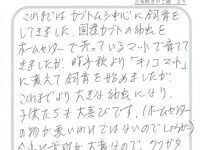 これまではカブトムシ中心に飼育を
してきました。国産カブトの幼虫を
ホームセンターで売っているマットで育てて
きましたが、昨年秋より「キノコマット」
に変えて飼育を始めましたが、
これまでより大きな幼虫になり
子供たちも大喜びです。(ホームセンター
の物が悪いわけではないのでしょうが)
クワガタ